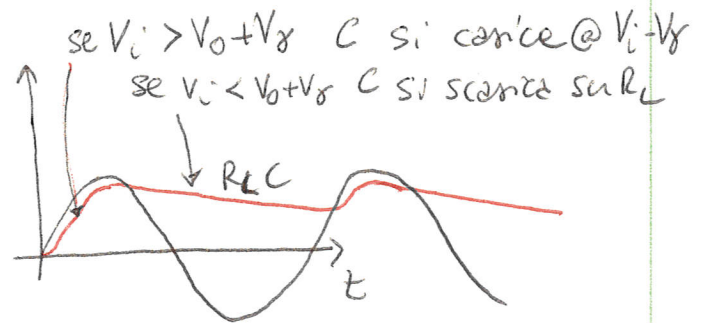 se Vi > V0 + Vγ C si carica @ Vi - Vγ
se Vi < V0 + Vγ C si scarica su RL
RLC
t